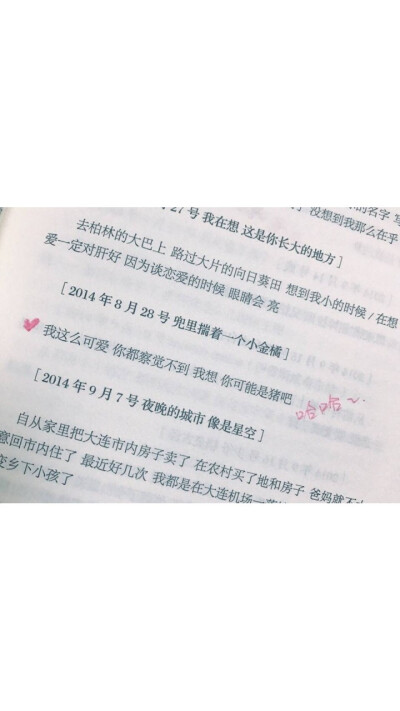 的名字 写
没想到我那么在乎
27号 我在想 这是你长大的地方]
去柏林的大巴上 路过大片的向日葵田 想到我小的时候/在想
爱一定对肝好 因为谈恋爱的时候 眼睛会 亮
[2014年8月28号 兜里揣着一个小金橘]
我这么可爱 你都察觉不到 我想 你可能是猪吧
哈哈~
[2014年9月7号 夜晚的城市 像是星空]
自从家里把大连市内房子卖了 在农村买了地和房子 爸妈就不
意回市内住了 最近好几次 我都是在大连机场一落
乡下小孩了